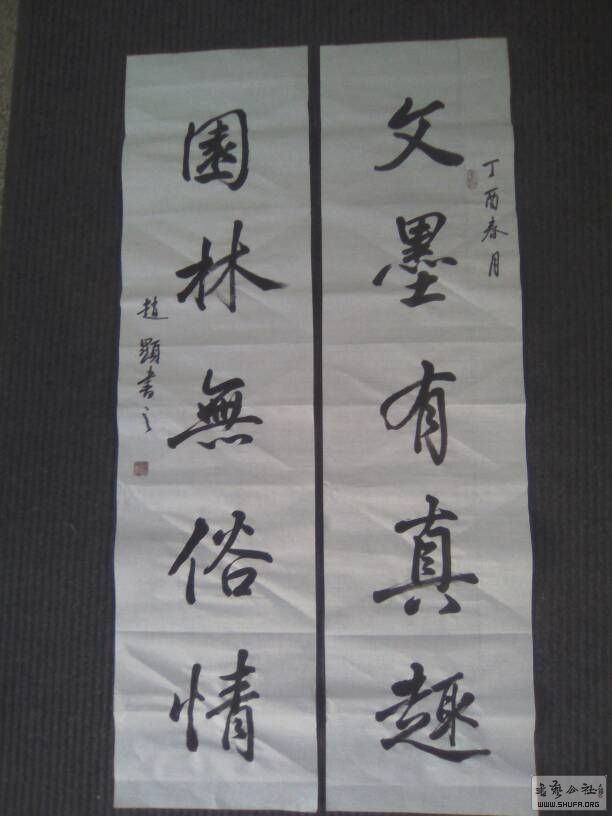 丁酉春月
文墨有真趣
園林無俗情
趙顯書之
書藝公社
WWW.SHUFA.ORG